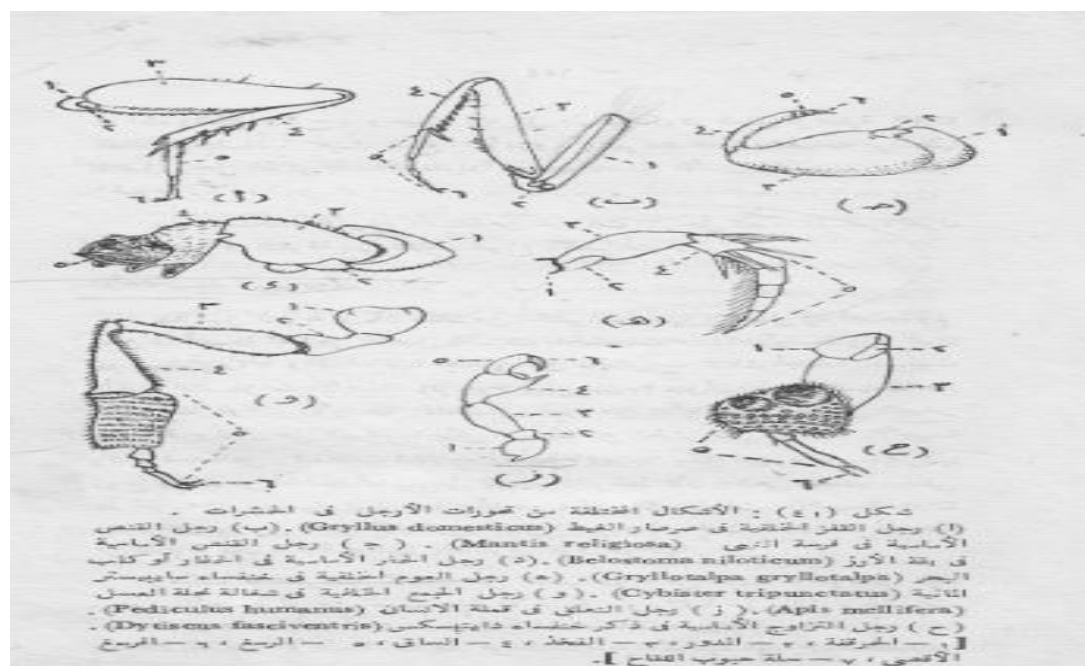 ٣ ١ ٢ ٤ ٥ ٦ (أ)
٤ ٣ ٥ ١ ٦ ٢ (ب)
٥ ٦ ٢ ٤ ١ ٣ (جـ)
٤ ٣ ١ ٥ ٢ (د)
٣ ٤ ١ ٢ ٥ (هـ)
١ ٣ ٢ ٤ ٥ ٦ (و)
٥ ٦ ٤ ٣ ٢ ١ (ز)
١ ٢ ٣ ٥ ٦ (ح)
شكل (٤١) : الأشكال المختلفة من تحورات الأرجل فى الحشرات .
(أ) رجل القفز الخلفية فى صرصار الغيط (Gryllus domesticus). (ب) رجل القنص
الأمامية فى فرسة النبى (Mantis religiosa) . (جـ) رجل القنص الأمامية
فى بقة الأرز (Belostoma niloticum). (د) رجل الحفر الأمامية فى الحفار أو كلب
البحر (Gryllotalpa gryllotalpa). (هـ) رجل العوم الخلفية فى خنفساء سايبستر
المائية (Cybister tripunctatus) . (و) رجل الجمع الخلفية فى شغالة نحلة العسل
(Apis mellifera). (ز) رجل التعلق فى قملة الانسان (Pediculus humanas).
(ح) رجل التزاوج الأمامية فى ذكر خنفساء دايتسكس (Dytiscus fasciventris).
[ ١ – الحرقفة ، ٢ – المدور ، ٣ – الفخذ ، ٤ – الساق ، ٥ – الرسغ ، ٦ – الرسغ
الأقصى ، ٧ – سلة حبوب اللقاح ].